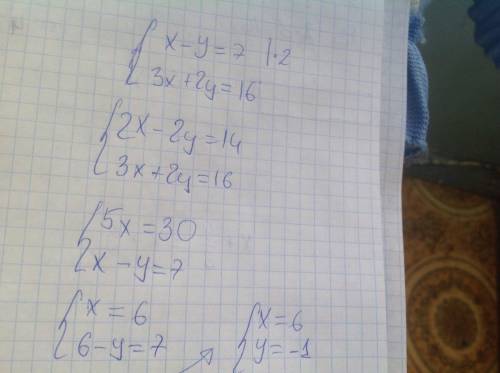 x-y=7 |·2
3x+2y=16
2x-2y=14
3x+2y=16
5x=30
x-y=7
x=6
6-y=7
x=6
y=-1